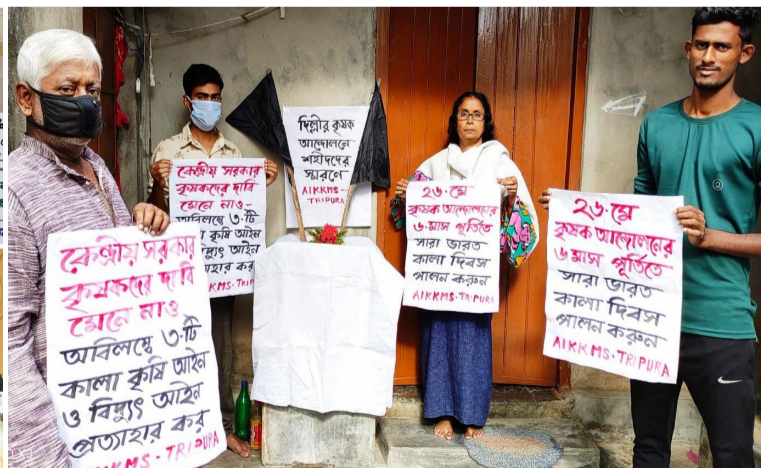 কেন্দ্রীয় সরকার
কৃষকদের দাবি
মেনে নাও
অবিলম্বে ৩-টি
কালা কৃষি আইন
ও বিদ্যুৎ আইন
প্রত্যাহার কর
AIKKMS-TRIPURA
কেন্দ্রীয় সরকার
কৃষকদের দাবি
মেনে নাও-
অবিলম্বে ৩-টি
কৃষি আইন
বিদ্যুৎ আইন
কর
দিল্লীর কৃষক
আন্দোলনে
শহীদদের
স্মরণে
AIKKMS-
TRIPURA
২৬-মে
কৃষক আন্দোলনের
৬-মাস পূর্তিতে
সারা ভারত
কালা দিবস
পালন করুন
AIKKMS-TRIPURA
২৬-মে
কৃষক আন্দোলনের
৬ মাস পূর্তিতে
সারা ভারত
কালা দিবস
পালন করুন
AIKKMS-TRIPURA